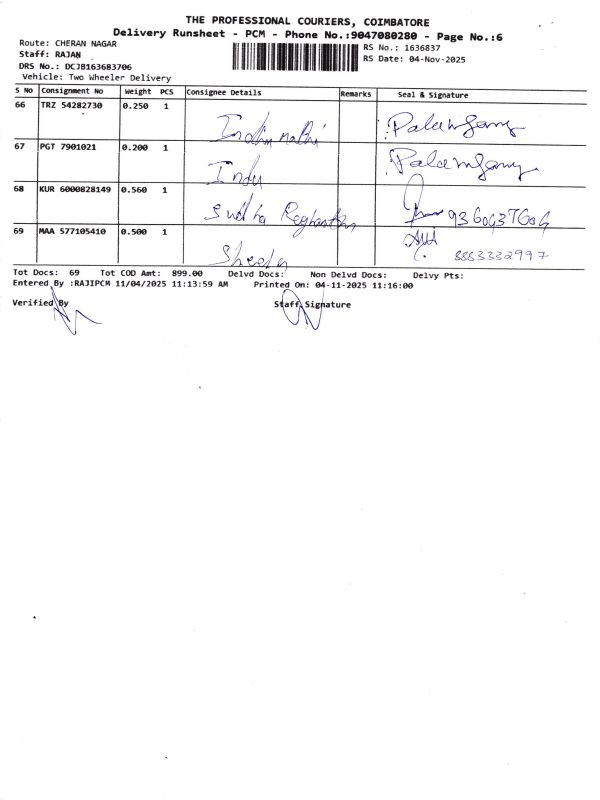 THE PROFESSIONAL COURIERS, COIMBATORE
Delivery Runsheet - PCM - Phone No.:9047080280 - Page No.:6
Route: CHERAN NAGAR
Staff: RAJAN
DRS No.: DCJB163683706
Vehicle: Two Wheeler Delivery
RS No.: 1636837
RS Date: 04-Nov-2025
S No Consignment No Weight PCS Consignee Details Remarks Seal & Signature
66 TRZ 54282730 0.250 1
67 PGT 7901021 0.200 1 Indu
68 KUR 6000828149 0.560 1 Sudha
69 MAA 577105410 0.500 1 Sheela 8883332997
Tot Docs: 69 Tot COD Amt: 899.00 Delvd Docs: Non Delvd Docs: Delvy Pts:
Entered By :RAJIPCM 11/04/2025 11:13:59 AM Printed On: 04-11-2025 11:16:00
Verified By Staff Signature